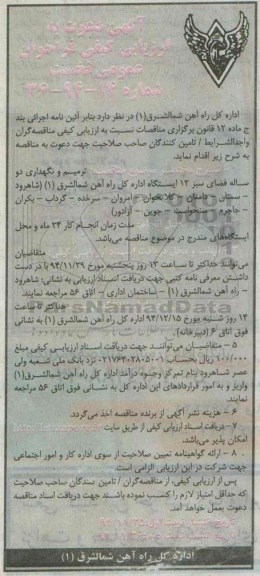 آگهی دعوت به
ارزیابی کیفی فراخوان
عمومی نخست
شماره ۱۴-۹۴-۳۶
اداره کل راه آهن شمالشرق(۱) در نظر دارد بنابر آئین نامه اجرائی بند
ج ماده ۱۲ قانون برگزاری مناقصات نسبت به ارزیابی کیفی مناقصه‌گران
واجدالشرایط / تامین کنندگان صاحب صلاحیت جهت دعوت به مناقصه
به شرح زیر اقدام نماید.
ترمیم و نگهداری دو
ساله فضای سبز ۱۲ ایستگاه اداره کل راه آهن شمالشرق (۱) (شاهرود
- بسطام - دامغان - گلابخوان - امروان - سرخده - گرداب - بکران
- جاجرم - سنخواست - جوین - آزادور)
مدت زمان انجام کار ۲۴ ماه و محل
ایستگاه‌های مندرج در موضوع مناقصه می‌باشد.
متقاضیان
می‌توانند حداکثر تا ساعت ۱۳ روز پنجشنبه مورخ ۹۴/۱۱/۲۹ با در دست
داشتن معرفی نامه کتبی جهت دریافت اسناد ارزیابی به نشانی: شاهرود
- راه آهن شمالشرق (۱) - ساختمان اداری - اتاق ۵۶ مراجعه نمایند.
حداکثر تا ساعت
۱۴ روز شنبه مورخ ۹۴/۱۲/۱۵ اداره کل راه آهن شمالشرق (۱) به نشانی
فوق اتاق ۶ (دبیرخانه).
۵ - متقاضیان می‌توانند جهت دریافت اسناد ارزیابی کیفی مبلغ
۱۰۰/۰۰۰ ریال بحساب ۲۱۷۶۴۰۲۸۰۵۰۰۱ نزد بانک ملی شعبه ولی
عصر شاهرود بنام تمرکز وجوه درآمد اداره کل راه آهن شمالشرق(۱)
واریز و به امور قراردادهای این اداره کل به نشانی فوق اتاق ۵۶ مراجعه
نمایند.
۶ - هزینه نشر آگهی از برنده مناقصه اخذ می‌گردد.
۷ - دریافت اسناد ارزیابی کیفی از طریق سایت
امکان پذیر می‌باشد.
۸ - ارائه گواهینامه تعیین صلاحیت از سوی اداره کار و امور اجتماعی
جهت شرکت در این ارزیابی الزامی است.
پس از ارزیابی کیفی، از مناقصه‌گران / تامین کنندگان صاحب صلاحیت
که حداقل امتیاز لازم را کسب نموده باشند جهت دریافت اسناد مناقصه
دعوت بعمل خواهد آمد.
اداره کل راه آهن شمالشرق (۱)